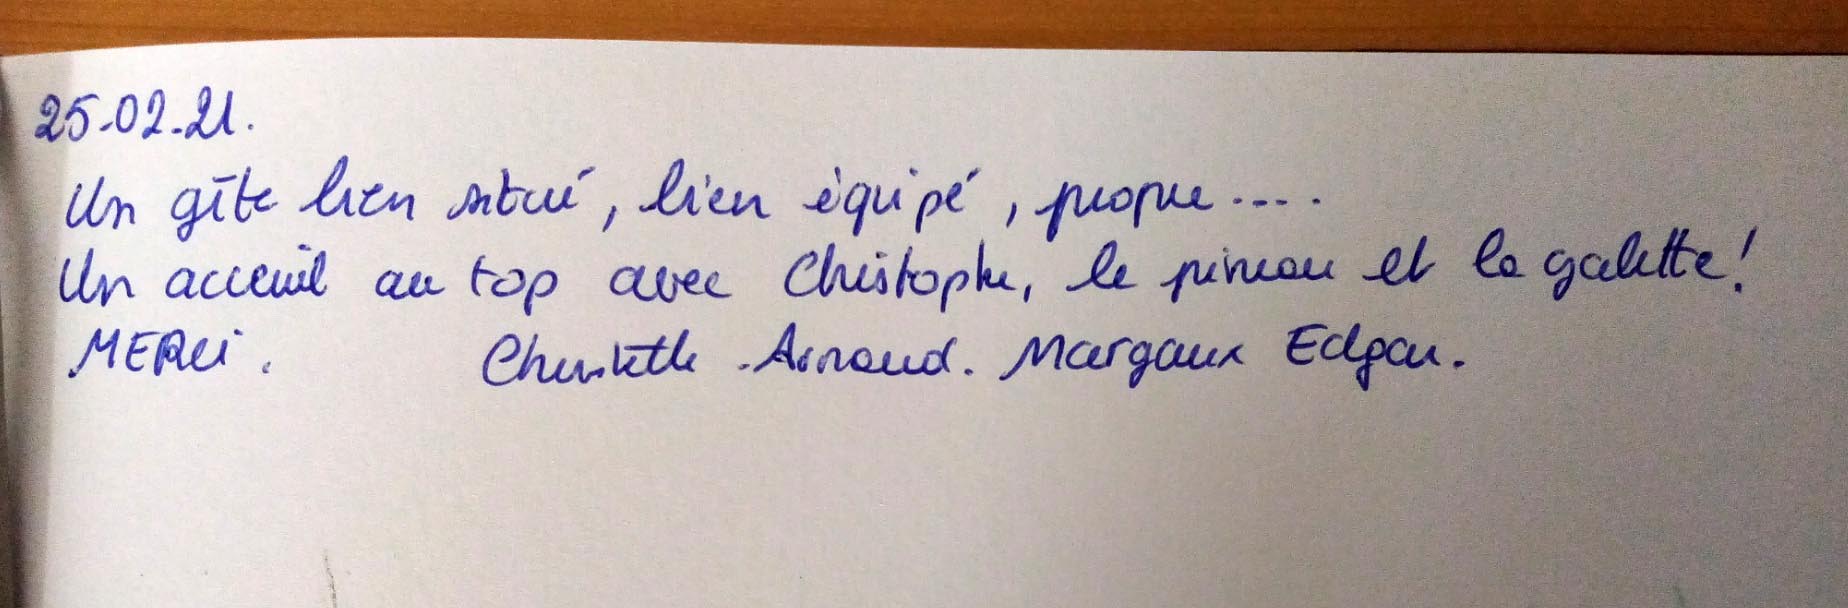 25.02.21.
Un gîte bien situé, bien équipé, propre....
Un acceuil au top avec Christophe, le pineau et la galette!
MERCi. Arnaud. Margaux Edgar.